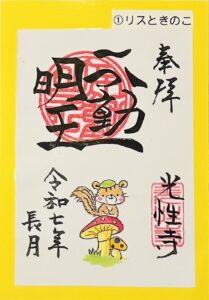 ①リスときのこ
奉拝
不動
明王
光性寺
令和七年
長月